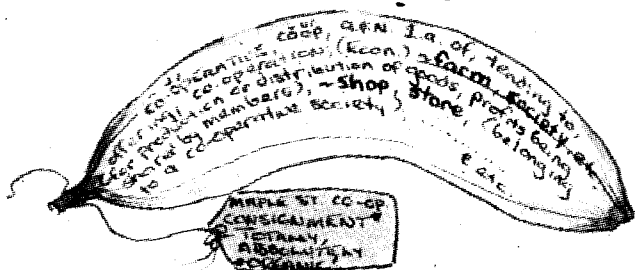 CO-OPERATIVE, CO-OP, a.&N. 1. a. of, tending to,
offering, co-operation; (Econ.) ~farm, society, etc.
(for production or distribution of goods, profits being
shared by members), ~shop, store, (belonging
to a co-operative society)
& etc
MAPLE ST CO-OP
CONSIGNMENT
TOTALLY,
ABSOLUTELY
ORGANIC